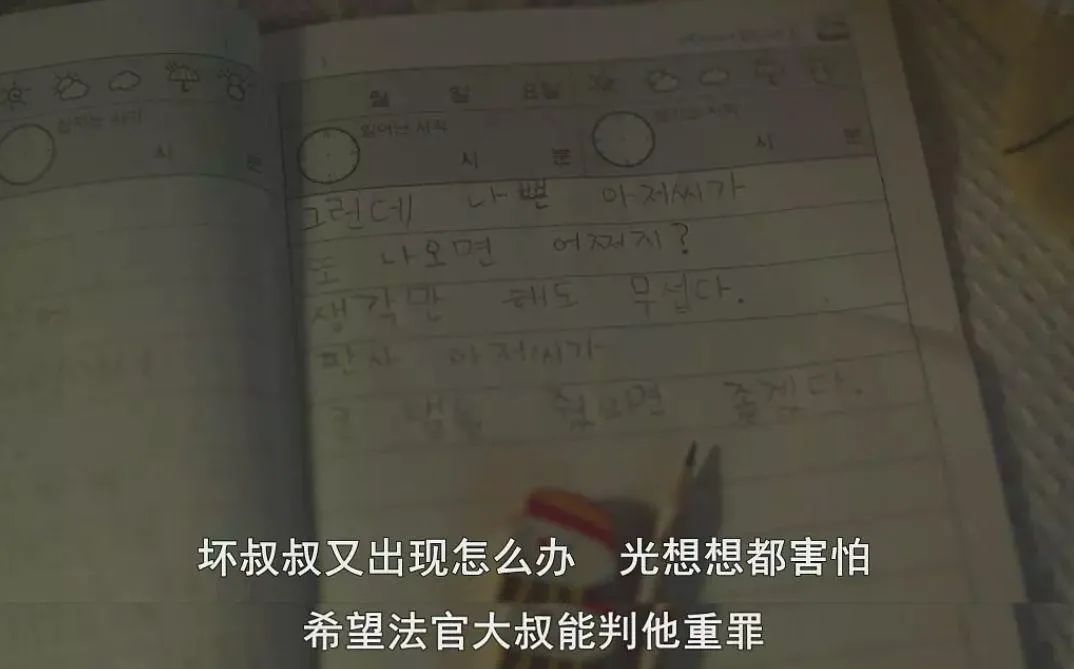 일 월 요일
잠자는 시각
시 분
일어난 시각
시 분
잠자는 시각
시 분
그런데 나쁜 아저씨가
또 나오면 어쩌지?
생각만 해도 무섭다.
판사 아저씨가
좋겠다.
坏叔叔又出现怎么办 光想想都害怕
希望法官大叔能判他重罪